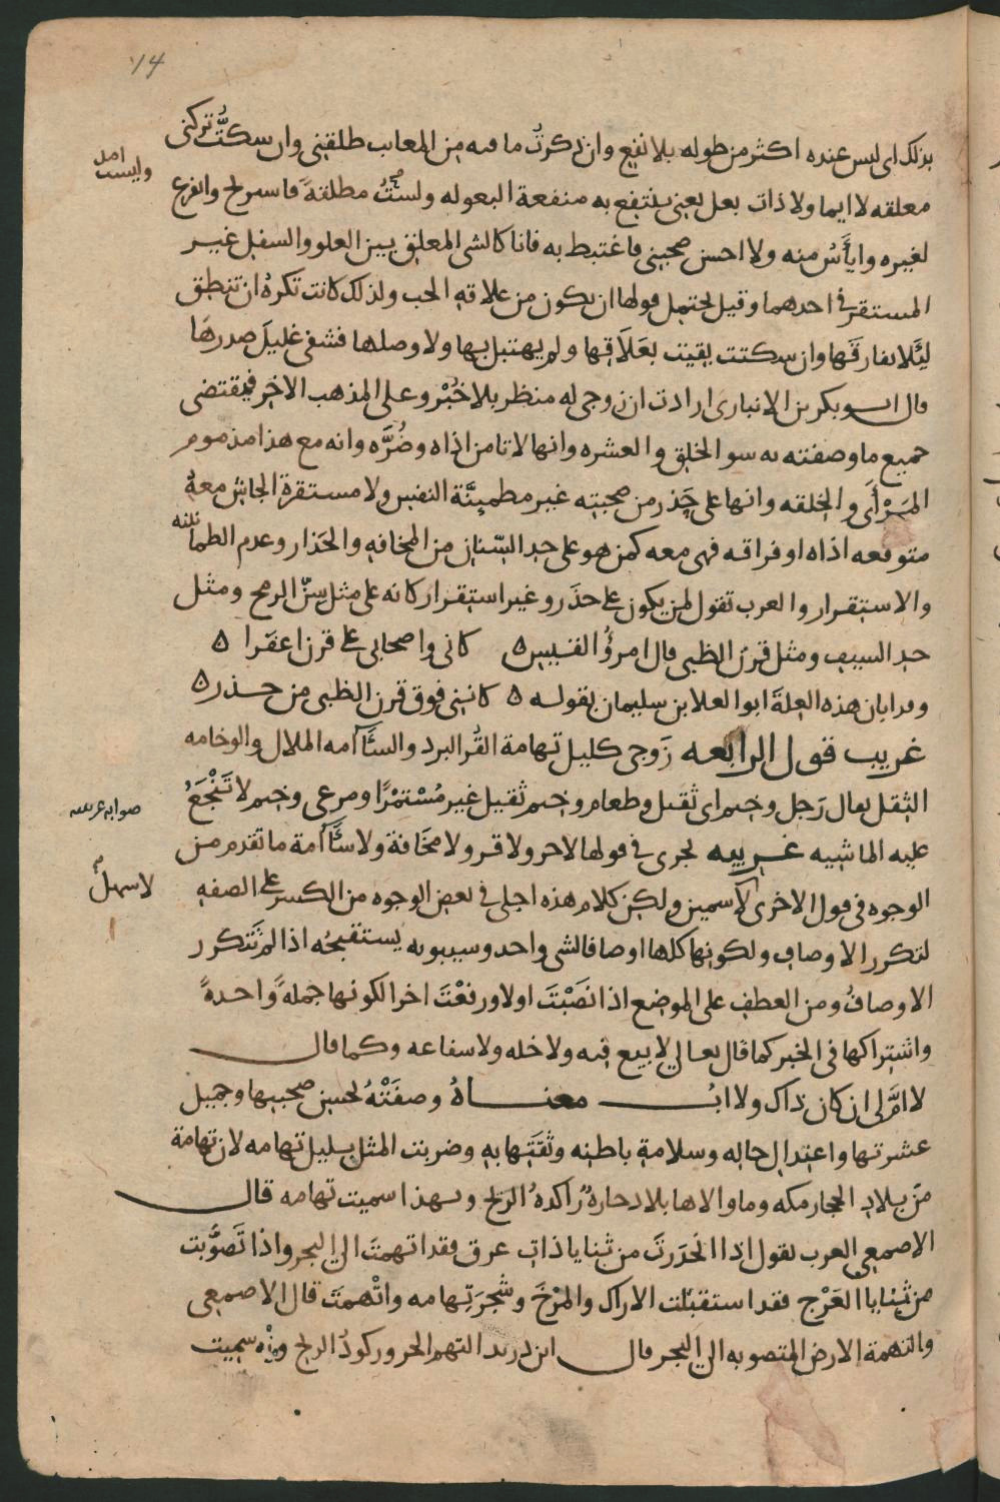 14
بذلك اى ليس عنده اكثر من طوله بلا نفع وان ذكرتُ ما فيه من المعايب طلقنى وان سكتُّ تركنى
معلقه لا ايما ولا ذات بعل يعنى ينتفع به منفعة البعوله ولستُ مطلقةً فاسرح واتفرغ
امل
وليست
لغيره وايأَسُ منه ولا احسن صحبتى فاغتبط به فانا كالشى المعلق بين العلو والسفل غير
المستقر فى احدهما وقيل يحتمل قولها ان يكون من علاقه الحب ولذلك كانت تكرهُ ان تنطق
ليَّلا يفارقَها وان سكتت بقيت بعَلَاقِها ولم يهتبل بها ولا وصلها فشفى غليلَ صدرهَا
قال ابو بكر بن الانبارى ارادت ان زوجى له منظر بلا خُبْرٍ وعلى المذهب الاخر فيقتضى
جميع ما وصفته به سو الخلق والعشره وانها لا تامن اذاه وضُرَّه وانه مع هذا مذموم
المَرْأَى والخلقه وانها على حَذر من صحبته غير مطمينَّة النفس ولا مستقرة الجاش معهُ
متوقعه اذاه او فراقه فهى معه كمن هو على حد السّنان من المخافه والحَذار وعدم الطمانينه
والاستقرار والعرب تقول لمن يكون على حذَر وغير استقرار كانه على مثل سنّ الرمح ومثل
حد السيف ومثل قرن الظبى قال امرؤُ القيس ه كانى واصحابى على قرن اعفَرا ه
وقد ابان هذه العلةَ ابو العلا بن سليمان بقوله ه كانينى فوق قرن الظبى من حذر ه
غريب قول الرابعه زَوجى كليل تهامة القُر البرد والسَّآمه الملال والوخامه
الثقل يقال رَجل وخيم اى ثقيل وطعام وخيم ثقيل غير مُسْتمْرًا ومرعى وخيم لا تَنْجَعُ
عليه الماشيه عربيه يجرى فى قولها لا حر ولا قر ولا مخَافة ولا سَآمة ما تقدم من
صوابه عربيته
الوجوه فى قول الاخرى لا سمين ولكن كلام هذه اجلى فى بعض الوجوه من الكسر على الصفه
لا سهلٌ
لتكرر الاوصاف ولكونها كلها اوصافا لشى واحد وسيبويه يستقبحُه اذا لم تتكرر
الاوصافُ ومن العطف على الموضع اذا نصَبْتَ اولا ورفعْتَ اخرا لكونها جملةً واحدةً
واشتراكها فى الخبر كما قال تعالى لا بيع فيه ولا خله ولا شفاعه وكما قال
لا امَّ لى ان كان ذاك ولا ابُ معناهُ وصفَتْهُ بحسن صحبتها وجميل
عشرتها واعتدال حاله وسلامةِ باطنه وثقَتِها به وضربت المثل بليل تهامه لان تهامة
من بلاد الحجاز مكه وما والاها بلاد حارةٌ راكدهُ الريح وبهذا سميت تهامه قال
الاصمعى العرب تقول اذا انحَدَرتَ من ثنايا ذات عرق فقد اتهمتَ الى البحر واذا تصَوَّبت
من ثنايا العَرْج فقد استقبلت الاراك والمَرْخَ وشجرَ تِهامه واتْهمتَ قال الاصمعى
والتهمة الارض المتصوبه الى البحر قال ابن دريد التهم الحر وركودُ الريح وبِهِ سميت